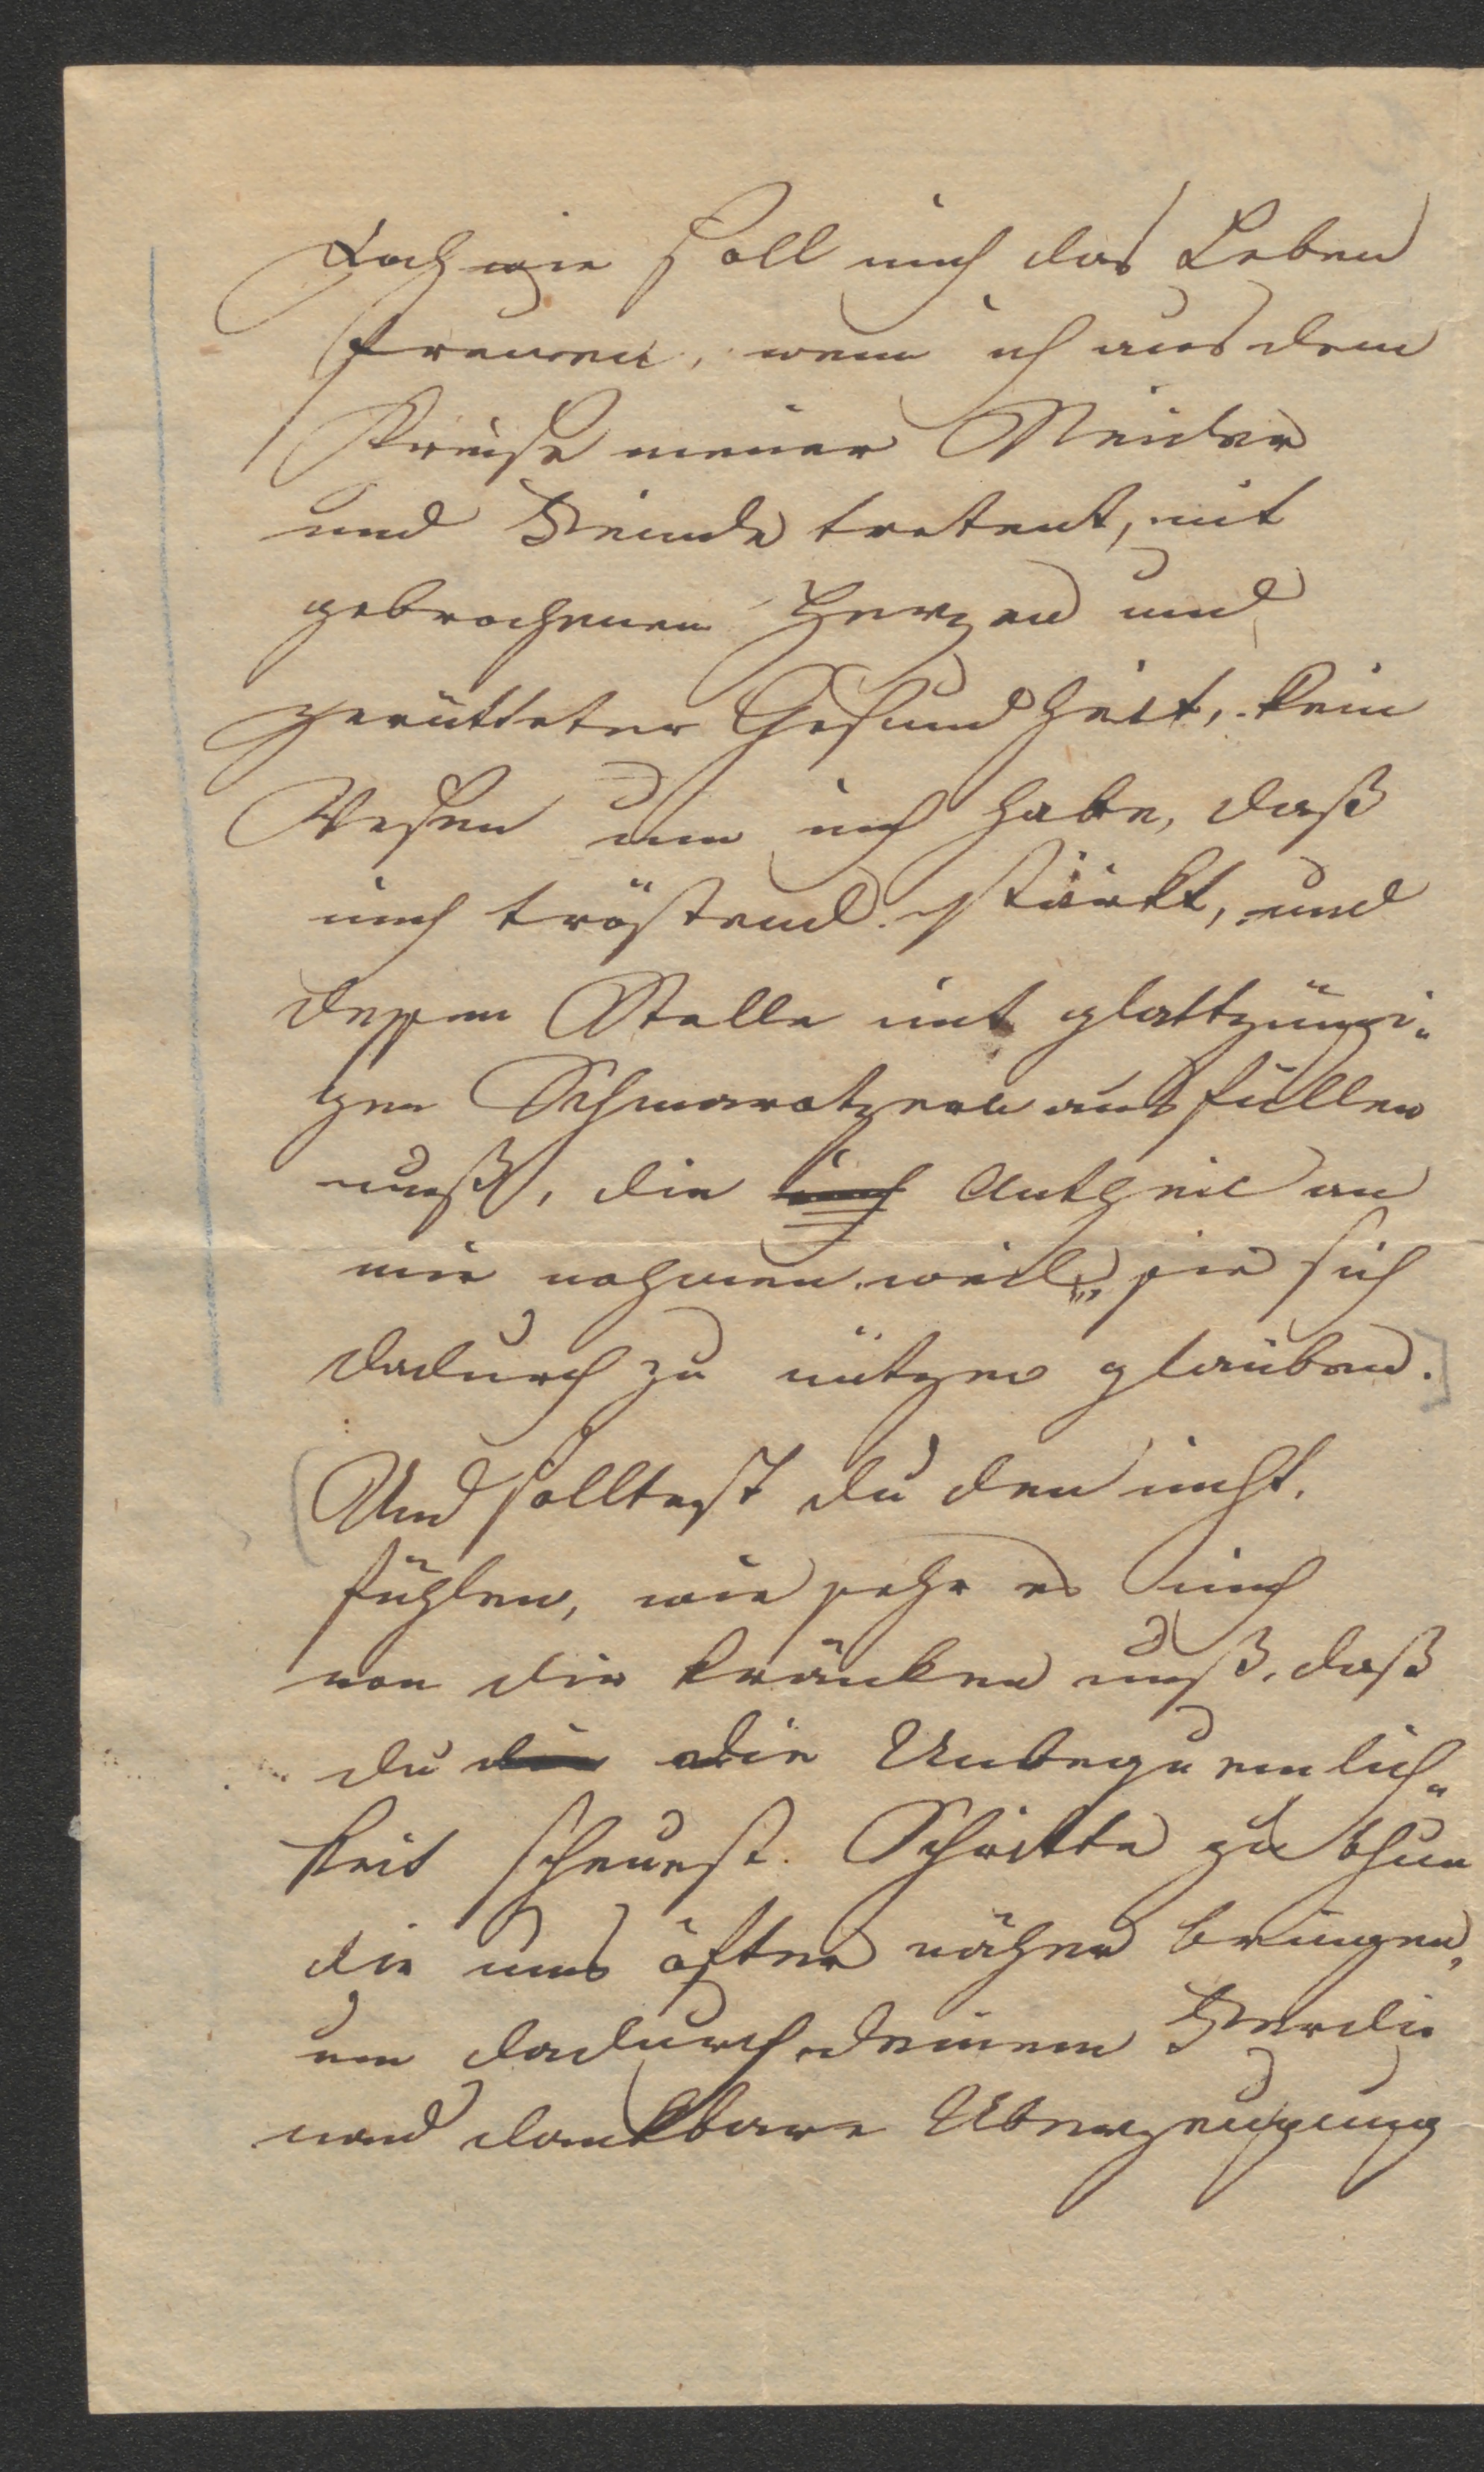 Doch wie soll mich das Leben
freuen, wenn ich aus dem
Kreise meiner Neider
und Feinde tretent, mit
gebrochenen Herzen und
zerütteter Gesundheit, kein
Wesen um mich habe, daß
mich tröstend stärkt, und
dessen Stelle mit glattzüngi-
gen Schmarotzern ausfüllen
muß, die mich Antheil an
mir nahmen weil sie sich
dadurch zu nützen glauben.
Und solltest du den nicht
fühlen, wie sehr es mich
von dir kränken muß, daß
du die die Unbequemlich-
keit scheuest. Schritte zu thun
die uns öfter näher bringen,
um dadurch deinem
und dankbare Uberzeugung